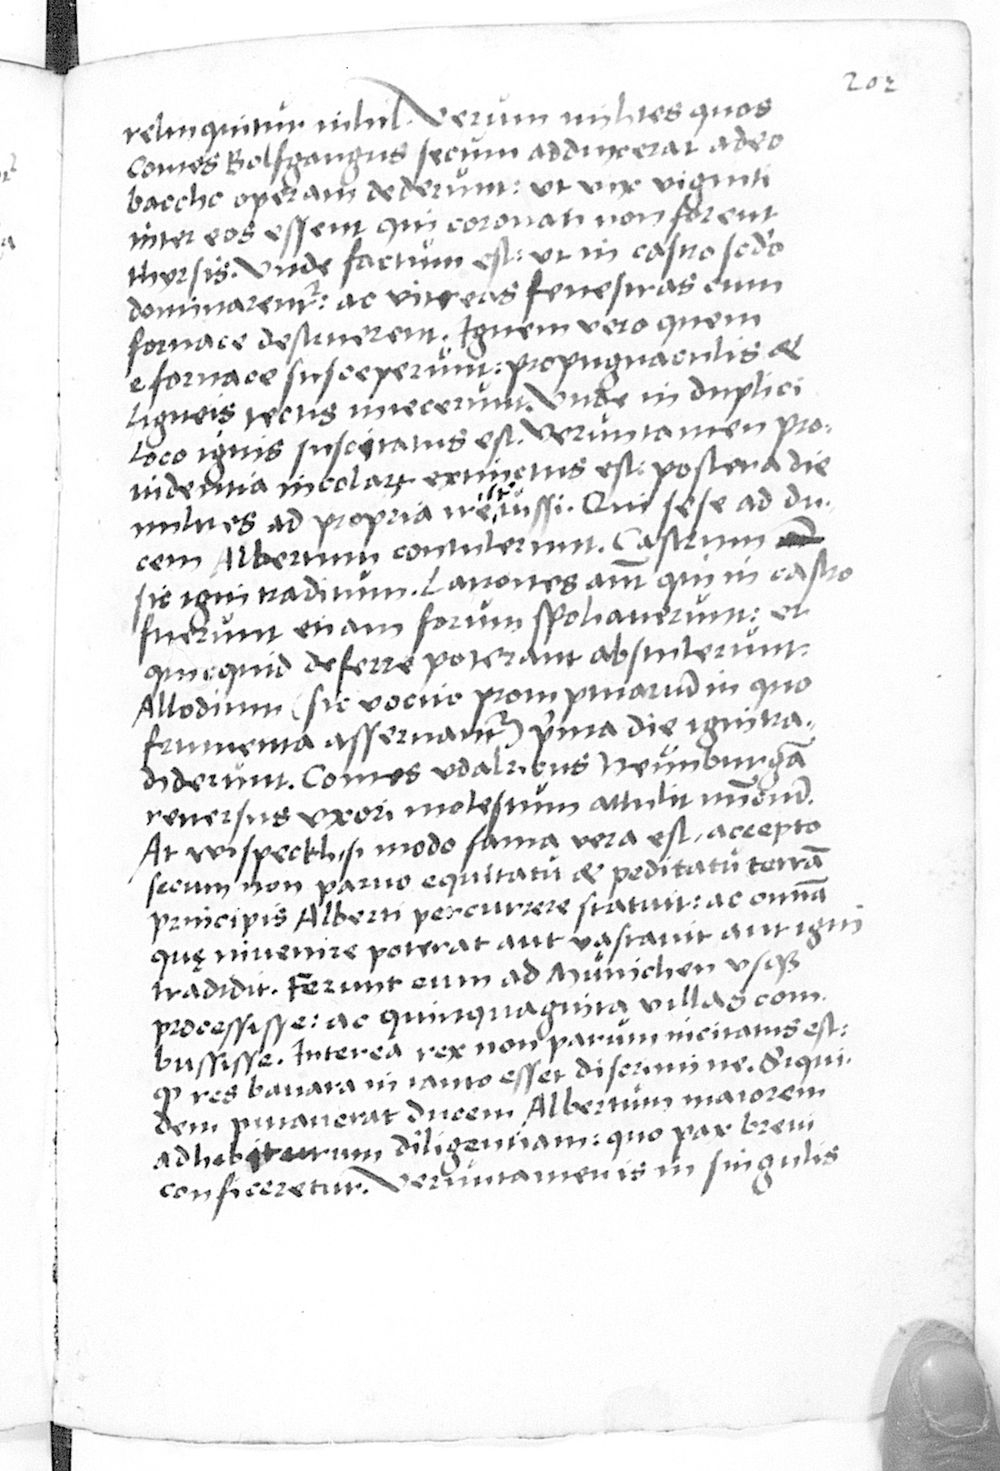 202
relinquitur nihil. Verum milites quos
Comes Bolfgangus secum adduxcerat adeo
baccho operam dederunt: ut vix viginti
inter eos essent qui coronati non forent
thyrsis. Unde factum est: ut in castro scd'o
dominarent᷑: ac vitreas fenestras cum
fornace destruerent. Ignem vero quem
e fornace susceperunt: propugnaculis &
Ligneis tectis iniecerunt. Unde in duplici
Loco ignis suscitatus est. Veruntamen pro-
uidentia incolarꝝ extinctus est: postera die
milites ad propria ire iussi. Qui sese ad du-
cem Albertum contulerunt. Castrum
sic igni traditum. Latrones aut̄ qui in castro
fuerunt etiam forum spoliauerunt: et
quicquid deferre poterant abstulerunt:
Allodium (sic vocito promptuariū in quo
frumenta asseruant᷑) p̄ma die igni tra-
diderunt. Comes vdalricus Neunburgā
reuersus vxori molestum attulit nūciū.
At wispeckh, si modo fama vera est, accepto
secum non paruo equitatu & peditatu terrā
principis Alberti percurrere statuit: ac omnā
quę inuenire poterat aut vastauit aut igni
tradidit. Ferunt eum ad Münichen vsqꝫ
processisse: ac quinquaginta villas com-
bussisse. Interea rex non parum incitatus est:
ꝙ res bauara in tanto esset discrimine. Siqui-
dem putauerat ducem Albertum maiorem
adhibiturum diligentiam: quo pax breui
conficeretur. Veruntamen is in singulis